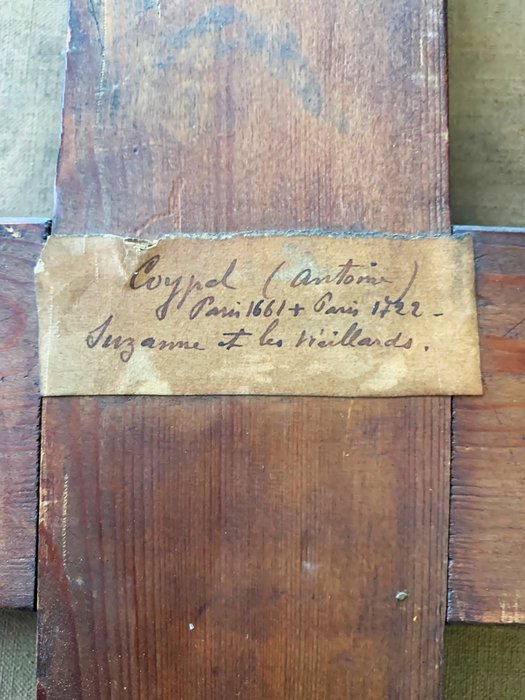 Coypel (Antoine)
Paris 1661 + Paris 1722 -
Suzanne et les vieillards.